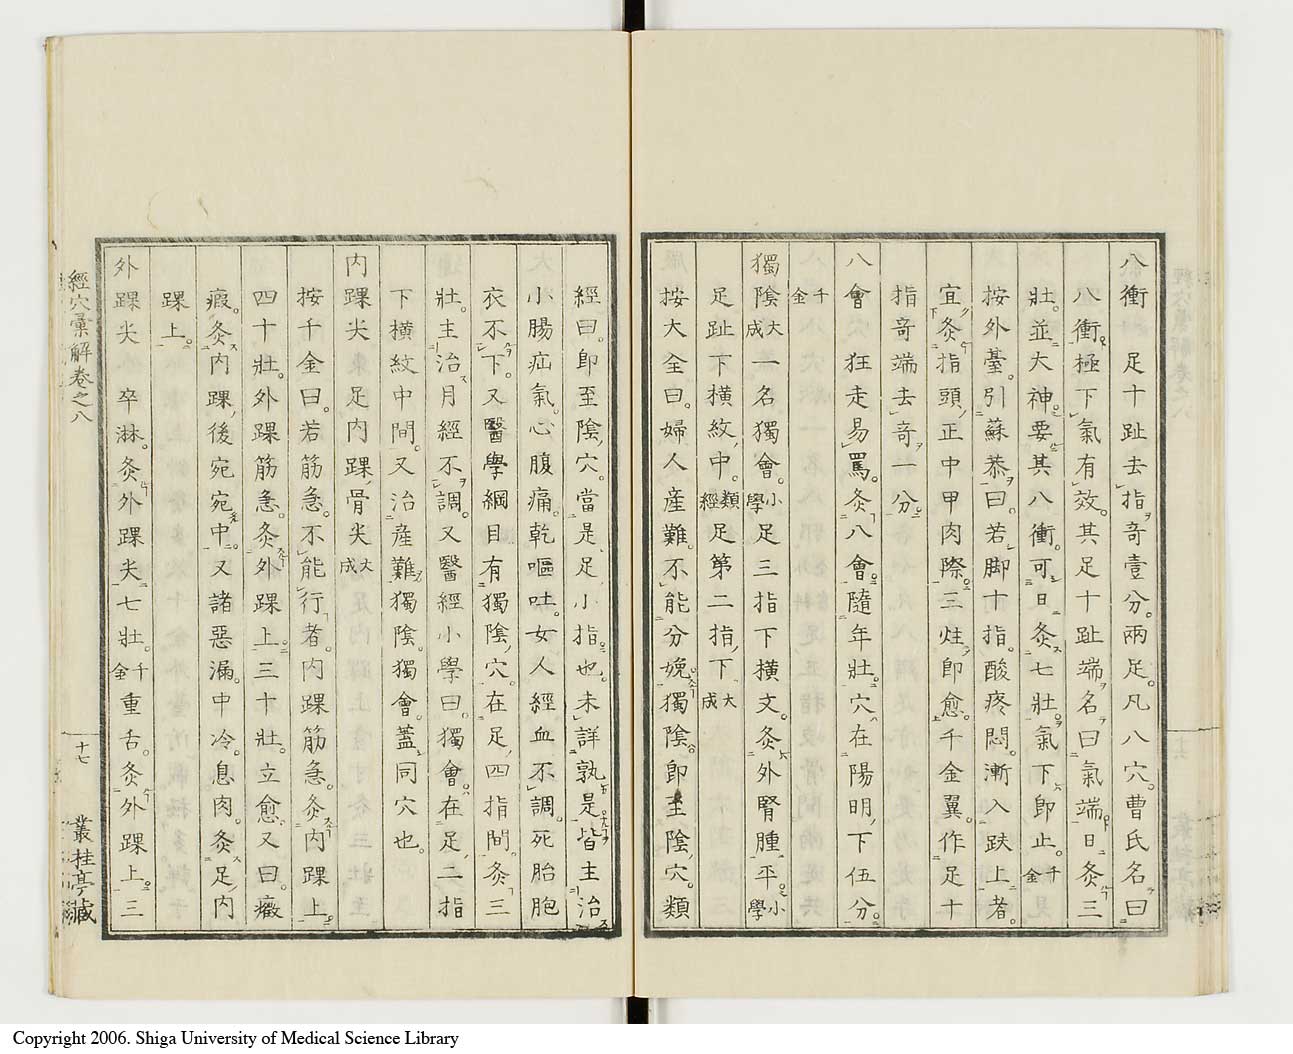 八衝　足十趾去指奇壹分。兩足。凡八穴。曹氏名曰
八衝。極下氣有效。其足十趾端名曰氣端。日灸三
壯。並大神。要其八衝。可日灸七壯。氣下即止。千金
按外臺。引蘇恭曰。若脚十指。酸疼悶。漸入趺上者。
宜灸指頭。正中甲肉際。三炷即愈。千金翼。作足十
指奇端去奇一分。
八會　狂走易罵。灸八會。隨年壯。穴在陽明下伍分。
千金
獨陰大成一名獨會。小學足三指下橫文。灸外腎腫平。小學
足趾下橫紋中。類經足第二指下大成
按大全曰。婦人產難。不能分娩。獨陰。即至陰穴。類
經曰。即至陰穴。當是足小指也。未詳孰是。皆主治
小腸疝氣。心腹痛。乾嘔吐。女人經血不調。死胎胞
衣不下。又醫學綱目有獨陰穴。在足四指間。灸三
壯。主治月經不調。又醫經小學曰。獨會。在足二指
下橫紋中間。又治產難。獨陰。獨會。蓋同穴也。
內踝尖　足內踝骨尖大成
按千金曰。若筋急。不能行者。內踝筋急。灸內踝上
四十壯。外踝筋急。灸外踝上三十壯。立愈。又曰。癥
瘕。灸內踝後宛宛中。又諸惡漏。中冷。息肉。灸足內
踝上。
外踝尖　卒淋。灸外踝尖七壯。千金重舌。灸外踝上三
經穴彙解卷之八
十七
叢桂亭藏
Copyright 2006. Shiga University of Medical Science Library